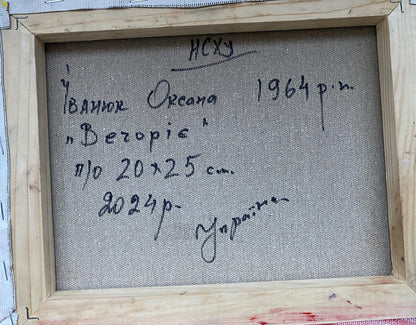 НСХУ
Іванюк Оксана 1964 р.н.
"Вечоріє"
п/о 20х25 см.
2024р.
Україна